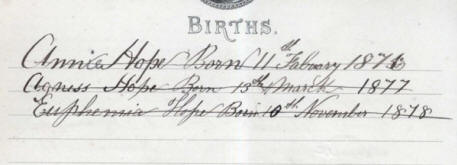 BIRTHS.
Annie Hope Born 11th Febuary 1873
Agness Hope Born 13th March 1877
Euphemia Hope Born 10th November 1878